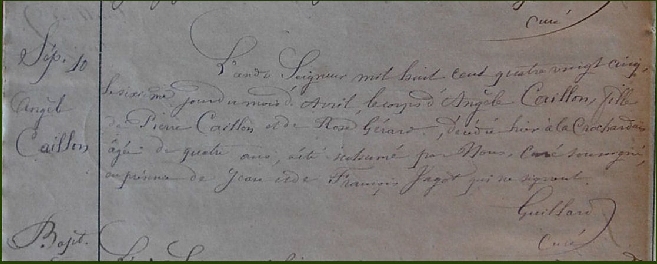 Curé
Sép. 10
Angèle
Caillon
L'an du Seigneur mil huit cent quatre vingt cinq,
le sixième jour du mois d'Avril, le corps d'Angèle Caillon, fille
de Pierre Caillon et de Rose Gérard, décédée hier à la
âgée de quatre ans, a été inhumé par Nous, Curé soussigné,
en présence de Jean et de François Jagot qui ne signent.
Guillard
Curé
Bapt.